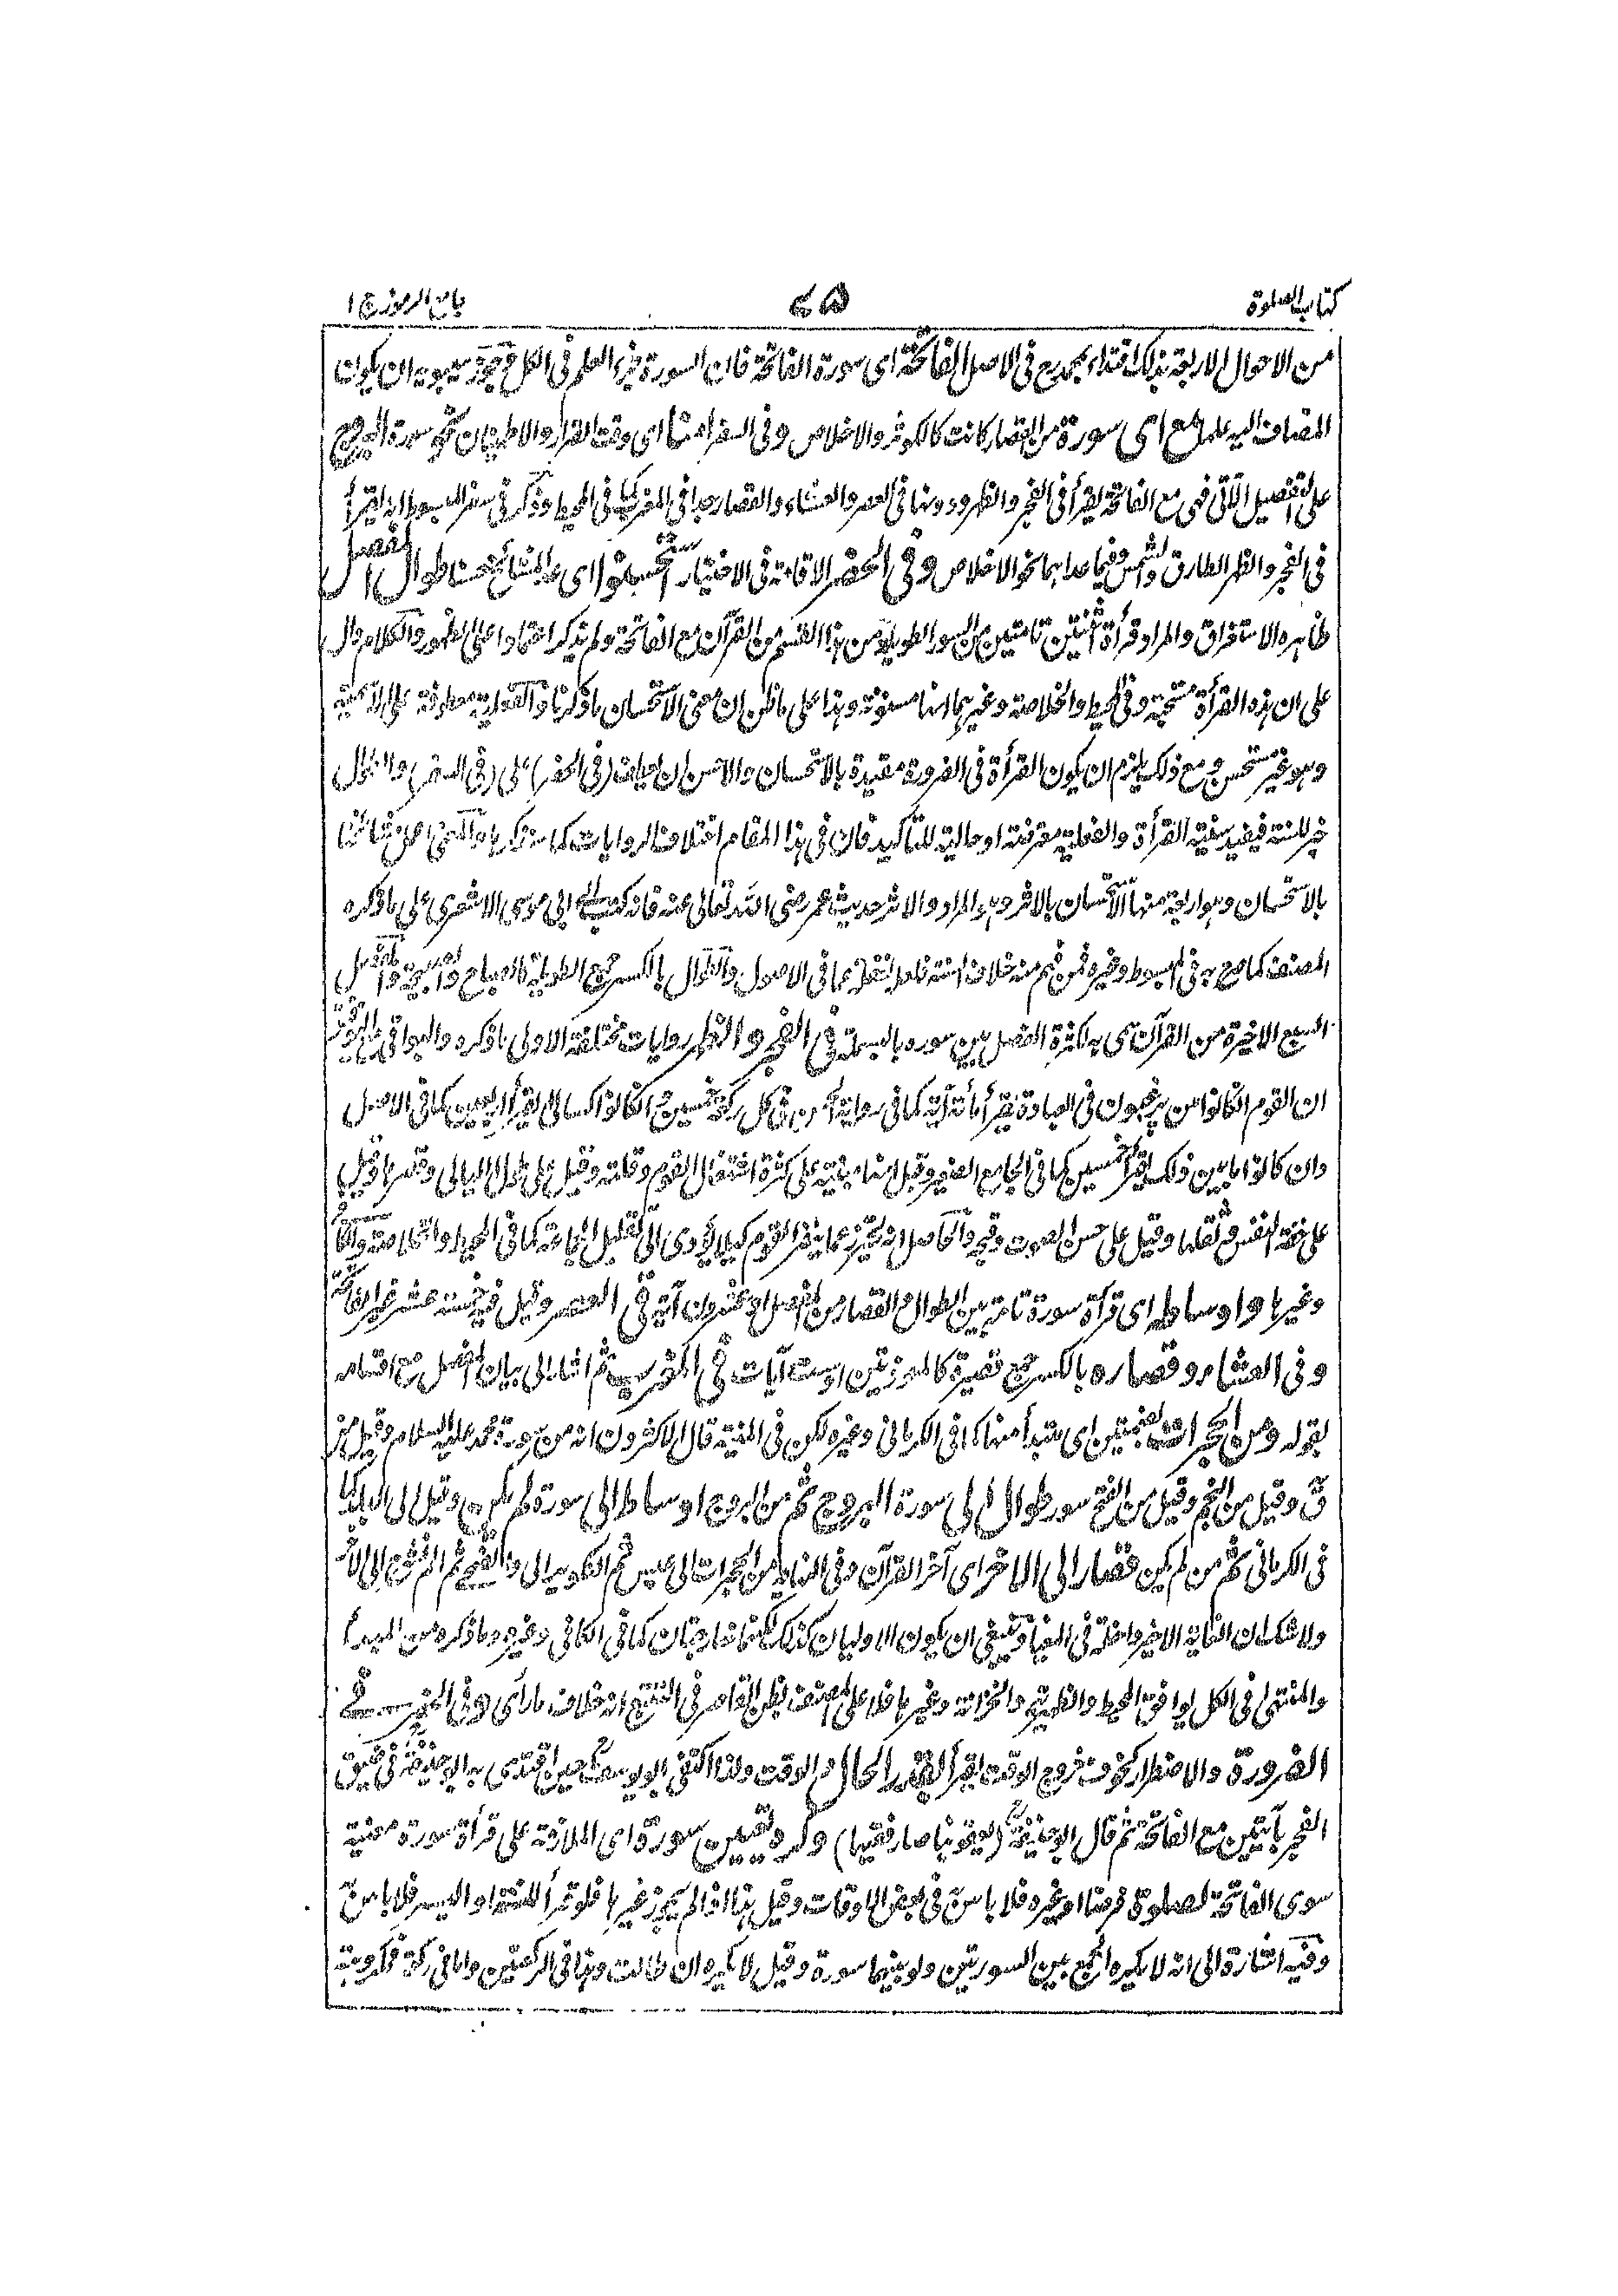 كتاب الصلوة ٧٥ جامع الرموز ج ١
من الاحوال الاربعة بذلك اقتداء بمحمد رح في الاصل الفاتحة اى سورة الفاتحة فان السورة جزء العلم في الكل وجوز سيبويه ان يكون
المضاف اليه علما مع اى سورة من القصار كانت كالكوثر والاخلاص وفى السفر امنا اى وقت القرار والاطمينان نحو سورة البروج
على التفصيل الآتى فهى مع الفاتحة يقرأ فى الفجر والظهر ودونها فى العصر والعشاء والقصار جدا فى المغرب كما فى المحيط وذكر فى سفر المبسوط انه يقرأ
فى الفجر والظهر الطارق والشمس وفيما عداهما نحو الاخلاص وفى الحضر الاقامة فى الاختيار استحسنوا اى عد المشائخ حسنا طوال المفصل
ظاهره الاستغراق والمراد قرأة ثنتين تامتين من السور الطويلة من هذا القسم من القرآن مع الفاتحة ولم يذكر اعتمادا على الظهور والكلام دال
على ان هذه القرأة مستحبة وفى المحيط والخلاصة وغيرهما انها مسنونة وهذا على ما ظن ان معنى الاستحسان ما ذكرنا والفعلية معطوفة على الاسمية
وهو غير مستحسن ومع ذلك يلزم ان يكون القرأة فى الضرورة مقيدة بالاستحسان والاحسن ان يعطف (فى الحضر) على (فى السفر) والطوال
خبر للسنة فيفيد سنية القرأة والفعلية معترضة او حالية للتأكيد فان فى هذا المقام اختلاف الروايات كما سنذكرها والمعنى اخذ مشائخنا
بالاستحسان وهو اربعة منها الاستحسان بالاثر وهو المراد والاثر حديث عمر رضى الله تعالى عنه فانه كتب الى ابى موسى الاشعرى على ما ذكره
المصنف كما صرح به فى المبسوط وغيره فمن فهم منه خلاف السنة فلعله لغفلة عما فى الاصول والطوال بالكسر جمع الطويلة كالصباح والصبيحة والمفصل
السبع الاخيرة من القرآن سمى به لكثرة الفصل بين سوره بالبسملة فى الفجر والظهر روايات مختلفة الاولى ما ذكره والبواقى
ان القوم ان كانوا ممن يرغبون فى العبادة يقرأ مائة آية كما فى رواية فى كل ركعة خمسين وان كانوا كسالى يقرأ اربعين كما فى الاصل
وان كانوا ما بين ذلك يقرأ خمسين كما فى الجامع الصغير وقيل انها مبنية على كثرة اشتغال القوم وقلته وقيل على طول الليالى وقصرها وقيل
على خفة النفس وثقلها وقيل على حسن الصوت وقبحه والحاصل انه يتحرز عما ينفر القوم كيلا يؤدى الى تقليل الجماعة كما فى المحيط والخلاصة
وغيرها واوساطه اى قرأة سورة تامة بين الطوال والقصار من المفصل او عشرون آية فى العصر وقيل فيه خمسة عشر غير الفاتحة
وفى العشاء وقصاره بالكسر جمع قصيرة كالمعوذتين او ست آيات فى المغرب ثم اشار الى بيان المفصل مع اقسامه
بقوله ومن الحجرات بضمتين اى مبتدأ منها كما فى الكرمانى وغيره لكن فى المنية قال الاكثرون انه من سورة محمد عليه السلام وقيل من
ق وقيل من النجم وقيل من الفتح سور طوال الى سورة البروج ثم من البروج اوساط الى سورة لم يكن وقيل الى البلد كما
فى الكرمانى ثم من لم يكن قصار الى الاخر اى آخر القرآن وفى النهاية من الحجرات الى عبس ثم التكوير الى والضحى ثم الم نشرح الى الآخر
ولا شك ان الغاية الاخيرة داخلة فى المغيا وينبغى ان يكون الاوليان كذلك لكنهما خارجتان كما فى الكافى وغيره وما ذكره من المبدأ
والمنتهى فى الكل يوافق المحيط والظهيرية والخزانة وغيرها فلا على المصنف بظن القاصر فى التتبع انه خلاف ما رأى وفى الحضر فى
الضرورة والاضطرار كخوف خروج الوقت يقرأ بقدر الحال والوقت ولذا اكتفى ابو يوسف حين اقتدى به ابو حنيفة فى ضيق
الفجر بآيتين مع الفاتحة ثم قال ابو حنيفة (يعقوبنا صار فقيها) وكره تعيين سورة اى الملازمة على قرأة سورة معينة
سوى الفاتحة لصلوة فرضا او غيره فلا باس فى بعض الاوقات وقيل هذا اذا لم يجوز غيرها فلو قرأ للسنة او اليسر فلا باس
وفيه اشارة الى انه لا يكره الجمع بين السورتين ولو بينهما سورة وقيل لا يكره ان طالت وهذا فى الركعتين واما فى ركعة فمكروهة